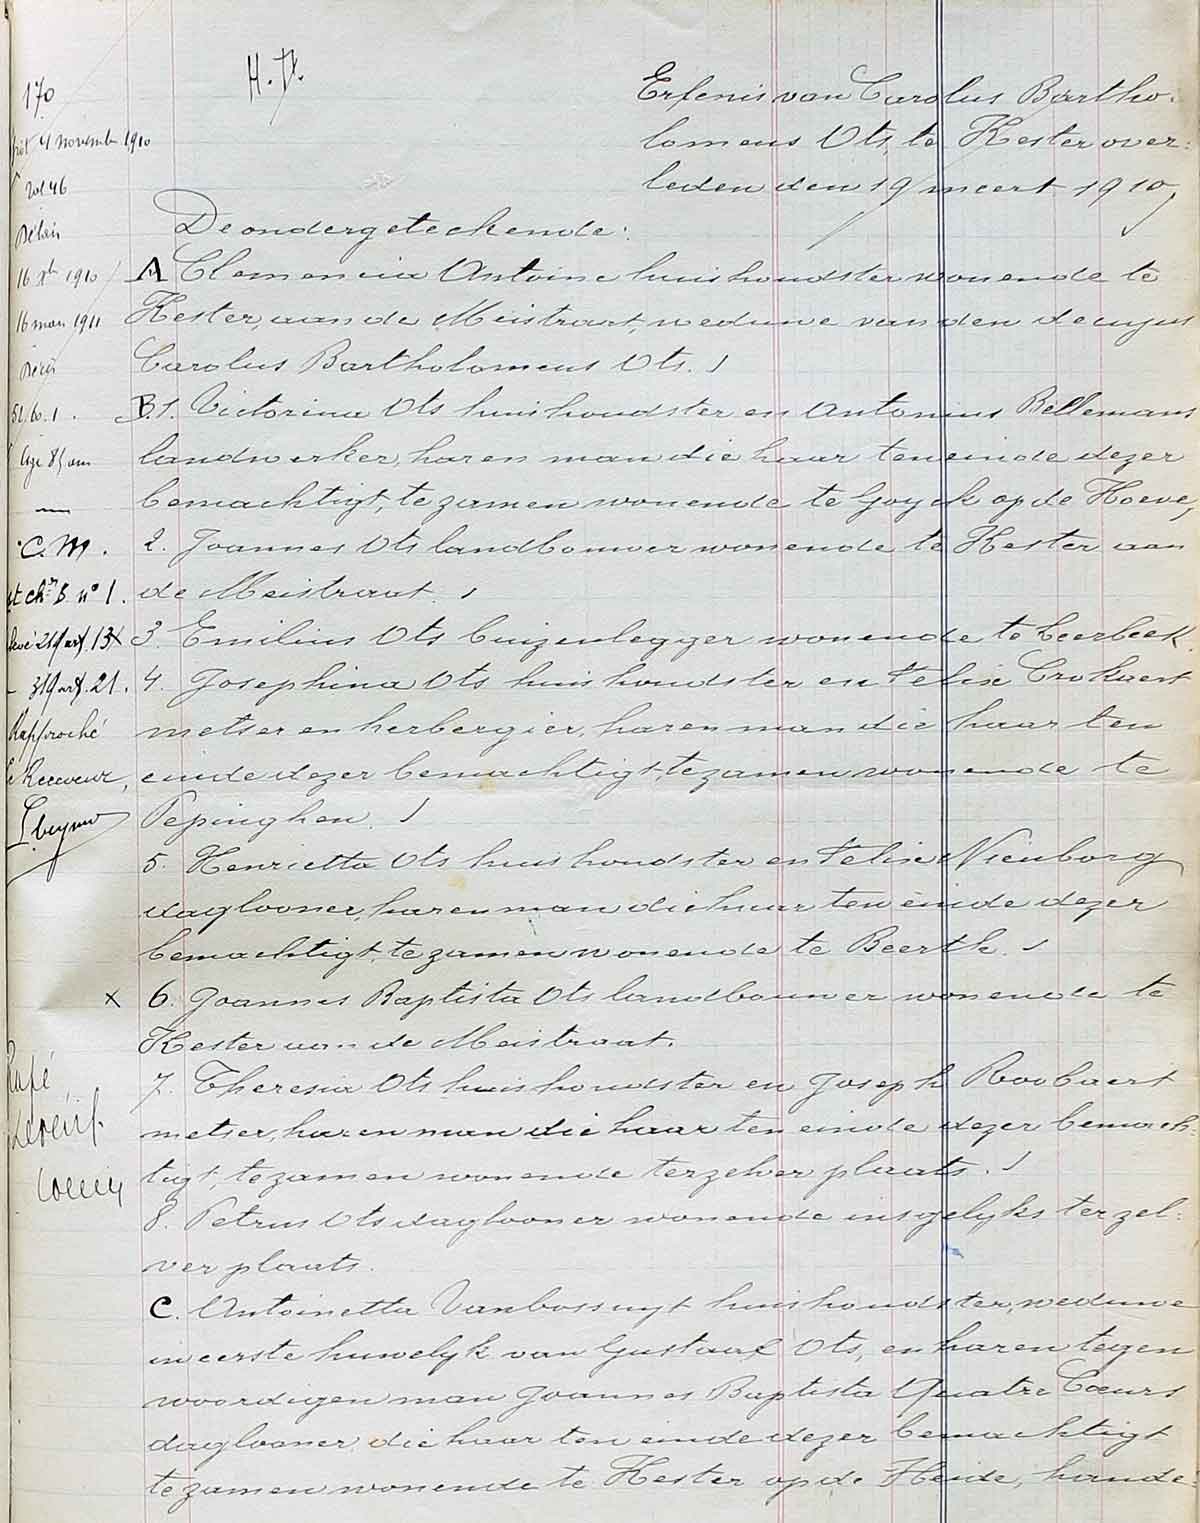 H. D.
Erfenis van Carolus Bartho-
lomeus Ots, te Kester over-
leden den 19 meert 1910,
170
4 novembre 1910
vol 46
Délai
16 Xbre 1910
16 mars 1911
Décès
51/60.1.
âge 85 ans
C.M.
n° 1.
219 art. 13
319 art. 21.
Rapproché
Le Receveur,
De ondergeteekende:
A Clemencia Antoine huishoudster wonende te
Kester, aan de Meistraat, weduwe van den decujus
Carolus Bartholomeus Ots.
B.1. Victorina Ots huishoudster en Antonius Bellemans
landwerker, haren man die haar ten einde dezer
bemachtigt, te zamen wonende te Goyck op de Hoeve,
2. Joannes Ots landbouwer wonende te Kester aan
de Meistraat.
3. Emilius Ots buizenlegger wonende te Leerbeek.
4. Josephina Ots huishoudster en Felix Crokaert
metser en herbergier, haren man die haar ten
einde dezer bemachtigt, te zamen wonende te
Pepinghen.
5. Henrietta Ots huishoudster en Felix Nienborg
daglooner, haren man die haar ten einde dezer
bemachtigt, te zamen wonende te Beerth.
x 6. Joannes Baptista Ots landbouwer wonende te
Kester aan de Meistraat.
7. Theresia Ots huishoudster en Joseph Roobaert
metser, haren man die haar ten einde dezer bemach-
tigt, te zamen wonende terzelver plaats.
8. Petrus Ots daglooner wonende insgelyks terzel-
ver plaats.
C. Antoinetta Vanbossuyt huishoudster, weduwe
in eerste huwelyk van Gustaaf Ots, en haren tegen
woordigen man Joannes Baptista Quatre Coeurs
daglooner, die haar ten einde dezer bemachtigt
te zamen wonende te Kester op de Heide, hande-